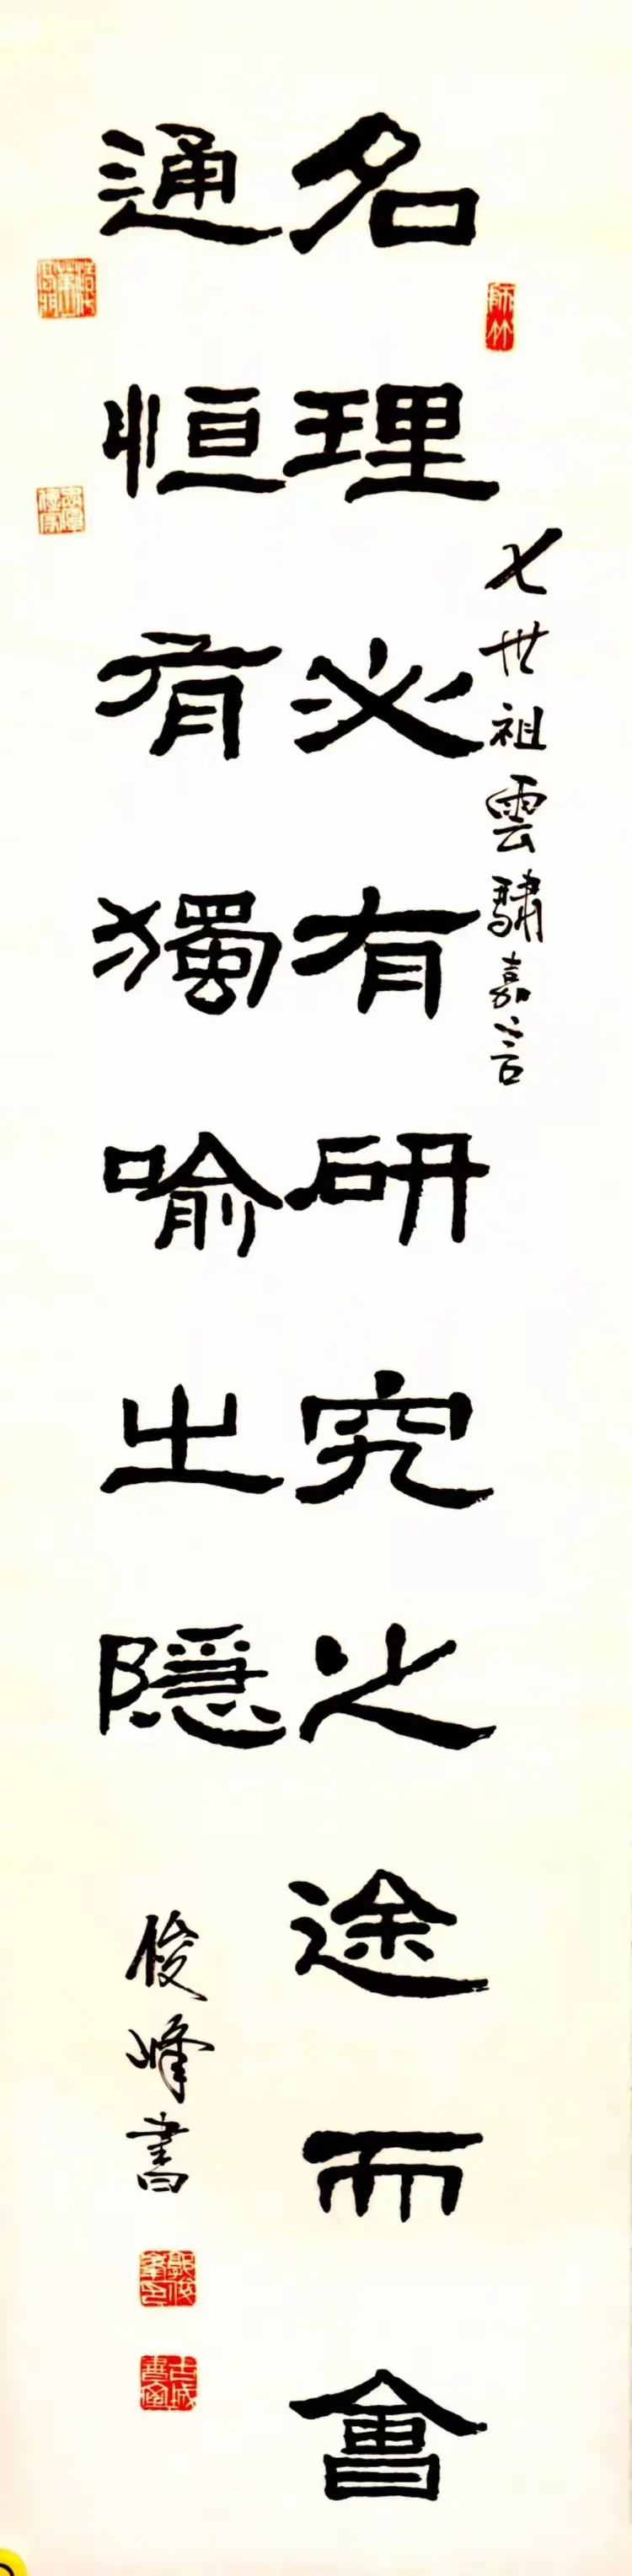 名理必有研究之途而會
通恒有獨喻之隱
七世祖雲驌嘉言
俊峰書